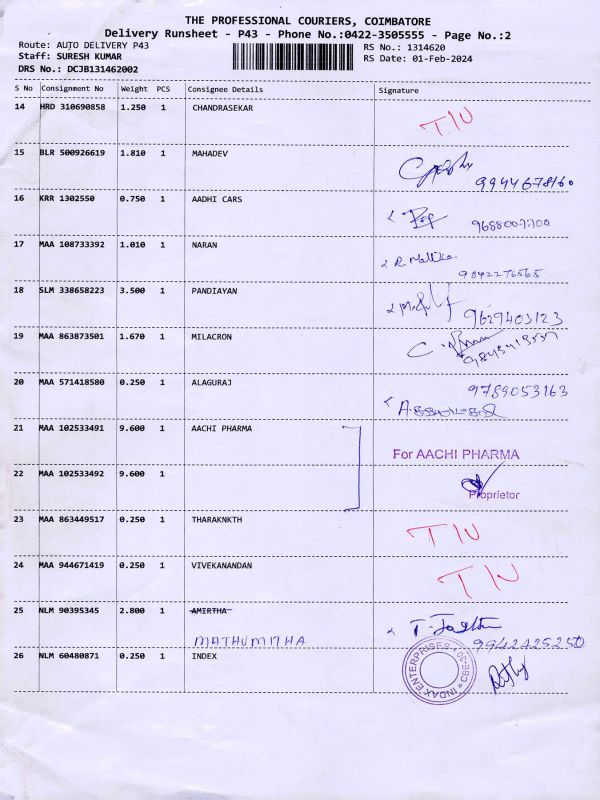 THE PROFESSIONAL COURIERS, COIMBATORE
Delivery Runsheet - P43 - Phone No.:0422-3505555 - Page No.:2
Route: AUTO DELIVERY P43 RS No.: 1314620
Staff: SURESH KUMAR RS Date: 01-Feb-2024
DRS No.: DCJB131462002
S No Consignment No Weight PCS Consignee Details Signature
14 HRD 310690858 1.250 1 CHANDRASEKAR
15 BLR 500926619 1.810 1 MAHADEV
9944678160
16 KRR 1302550 0.750 1 AADHI CARS
9688007700
17 MAA 108733392 1.010 1 NARAN
R. Mallika
9842276565
18 SLM 338658223 3.500 1 PANDIAYAN
9629403123
19 MAA 863873501 1.670 1 MILACRON
20 MAA 571418580 0.250 1 ALAGURAJ
9789053163
21 MAA 102533491 9.600 1 AACHI PHARMA
For AACHI PHARMA
22 MAA 102533492 9.600 1
Proprietor
23 MAA 863449517 0.250 1 THARAKNKTH
24 MAA 944671419 0.250 1 VIVEKANANDAN
25 NLM 90395345 2.800 1 AMIRTHA
MATHUMITHA
9942425250
26 NLM 60480871 0.250 1 INDEX
INDAX ENTERPRISES